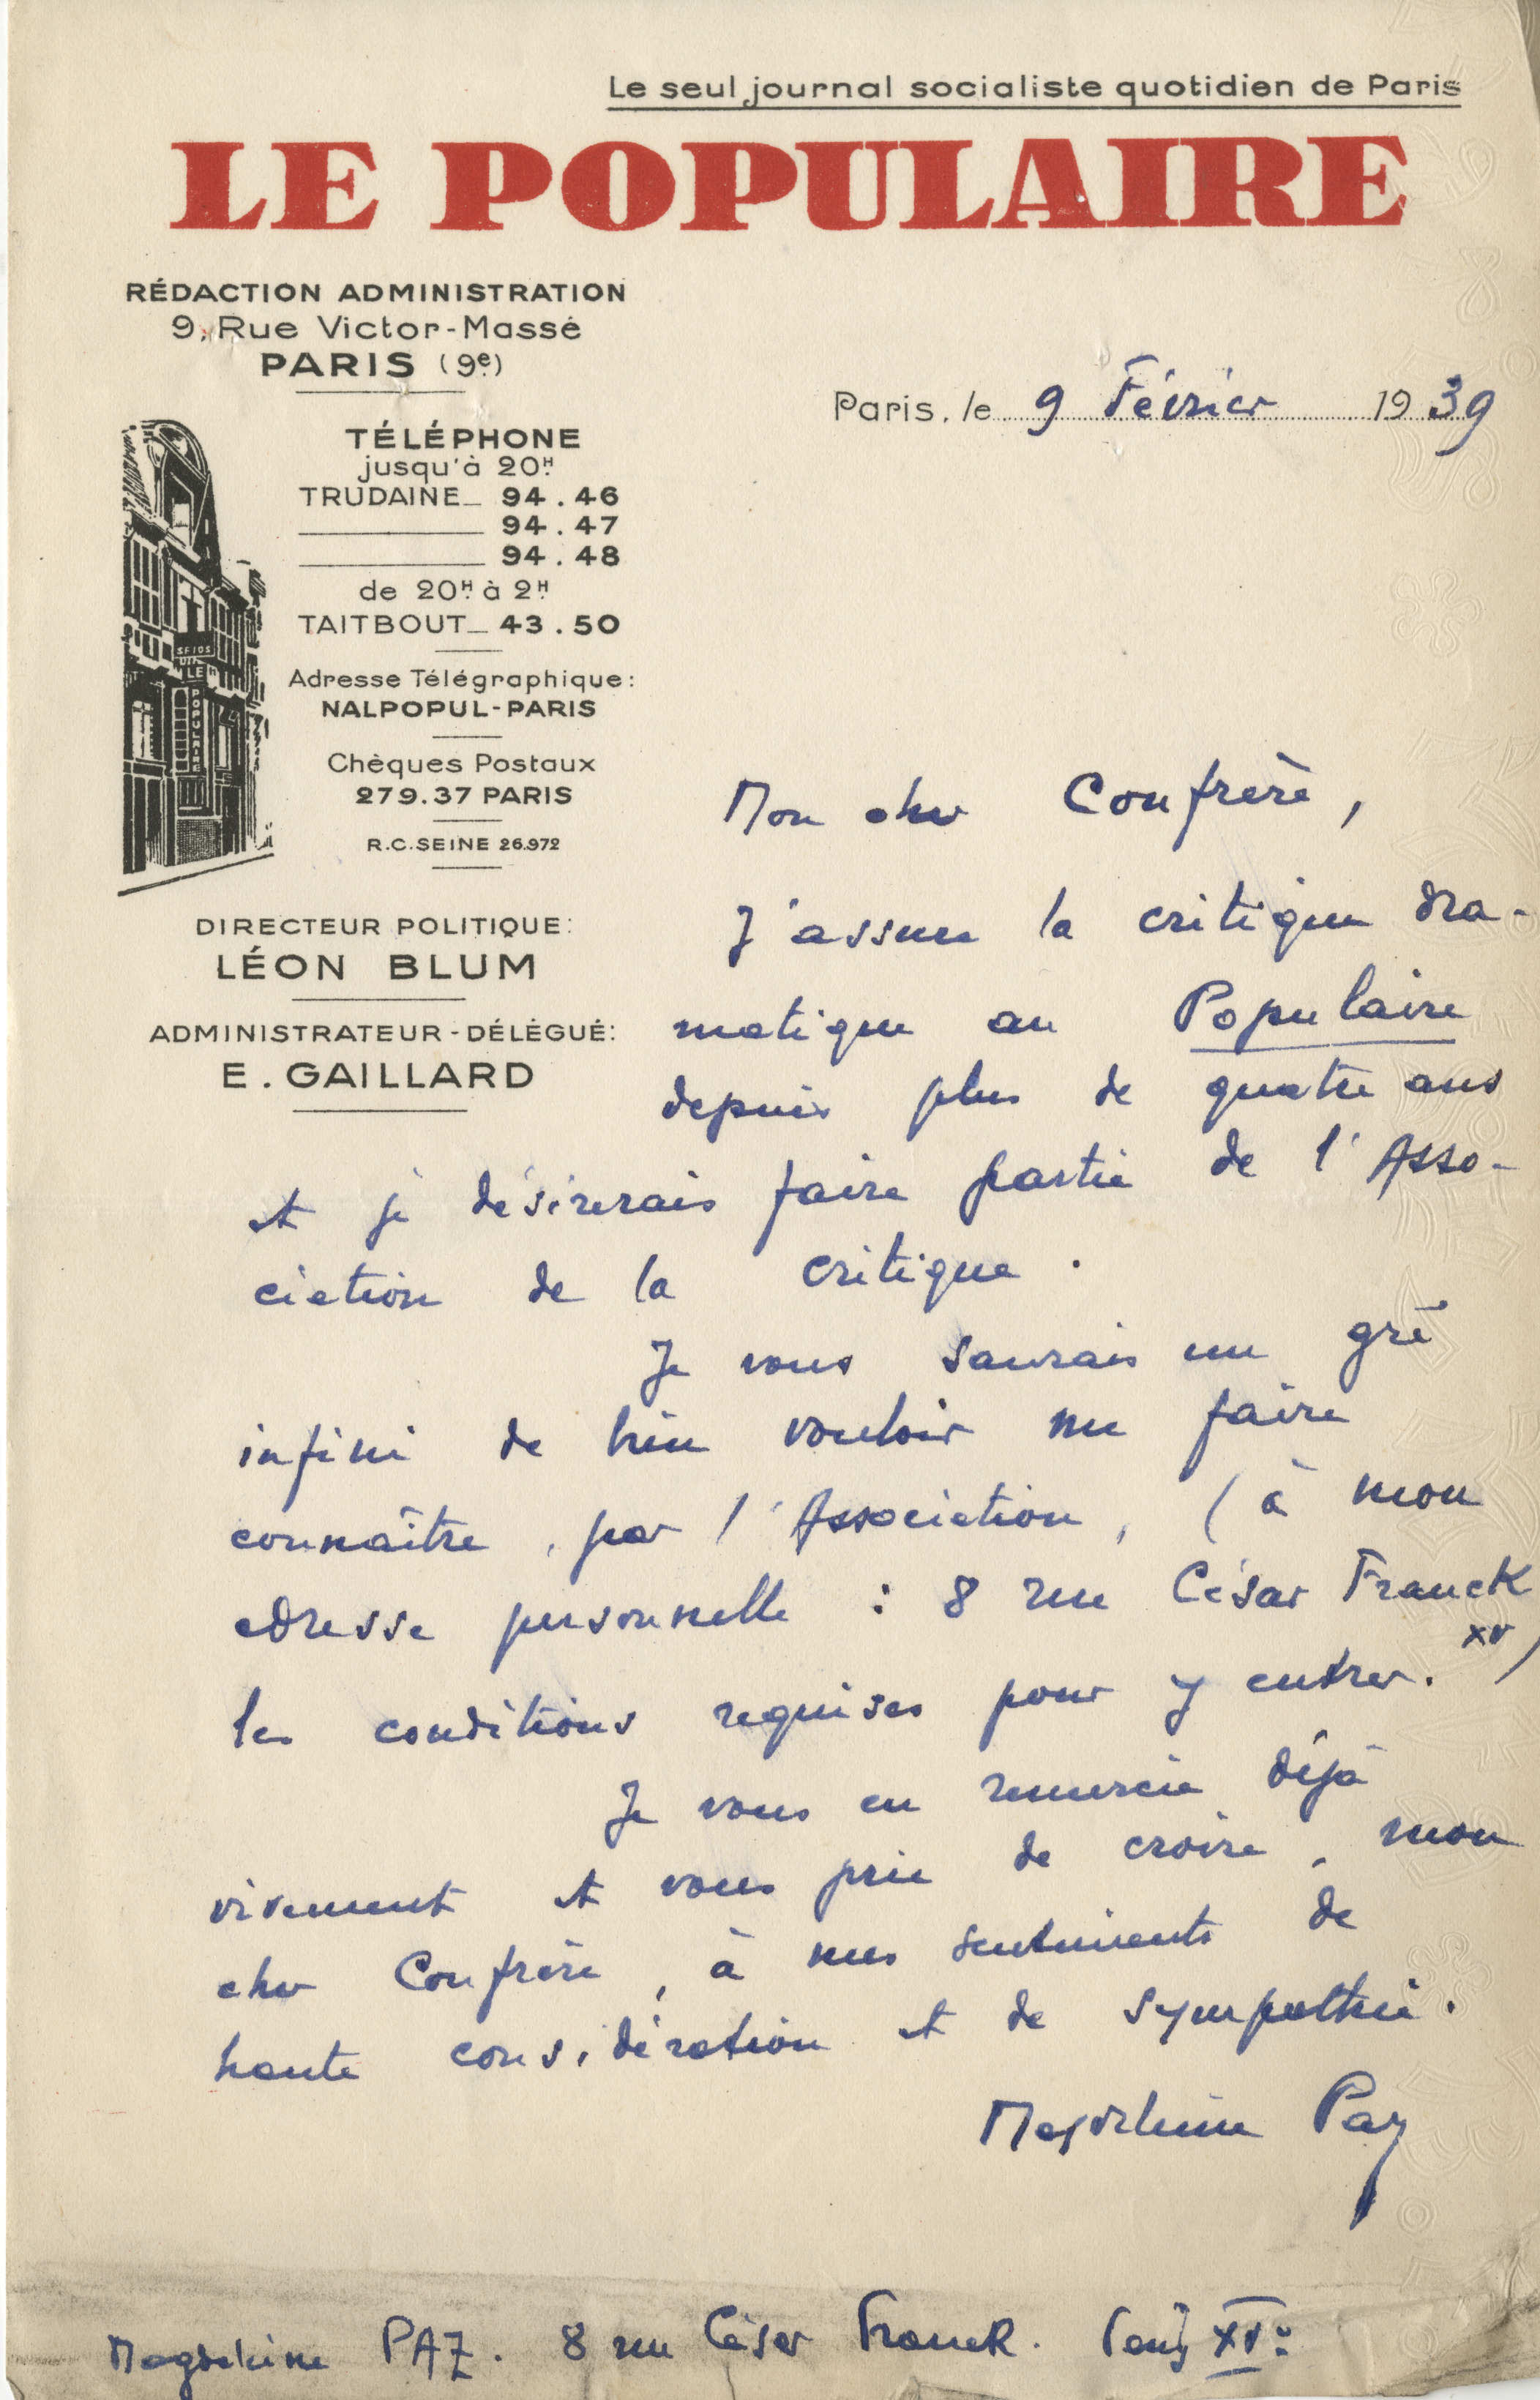 Le seul journal socialiste quotidien de Paris
LE POPULAIRE
RÉDACTION ADMINISTRATION
9, Rue Victor-Massé
PARIS (9e)
Paris, le 9 Février 1939
TÉLÉPHONE
jusqu'à 20H
TRUDAINE_ 94.46
94.47
94.48
de 20H à 2H
TAITBOUT_ 43.50
SFIO
LE
POPULAIRE
Adresse Télégraphique:
NALPOPUL-PARIS
Chèques Postaux
279.37 PARIS
R.C.SEINE 26.972
DIRECTEUR POLITIQUE:
LÉON BLUM
ADMINISTRATEUR-DÉLÉGUÉ:
E. GAILLARD
Mon cher Confrère,
J'assure la critique dra-
matique au Populaire
depuis plus de quatre ans
et je désirerais faire partie de l'Asso-
ciation de la critique.
Je vous saurais un gré
infini de bien vouloir me faire
connaître, par l'Association, (à mon
adresse personnelle : 8 rue César Franck
XV)
les conditions requises pour y entrer.
Je vous en remercie déjà
vivement et vous prie de croire, mon
cher Confrère, à mes sentiments de
haute considération et de sympathie.
Magdeleine Paz
Magdeleine PAZ. 8 rue César Franck. Paris XVe